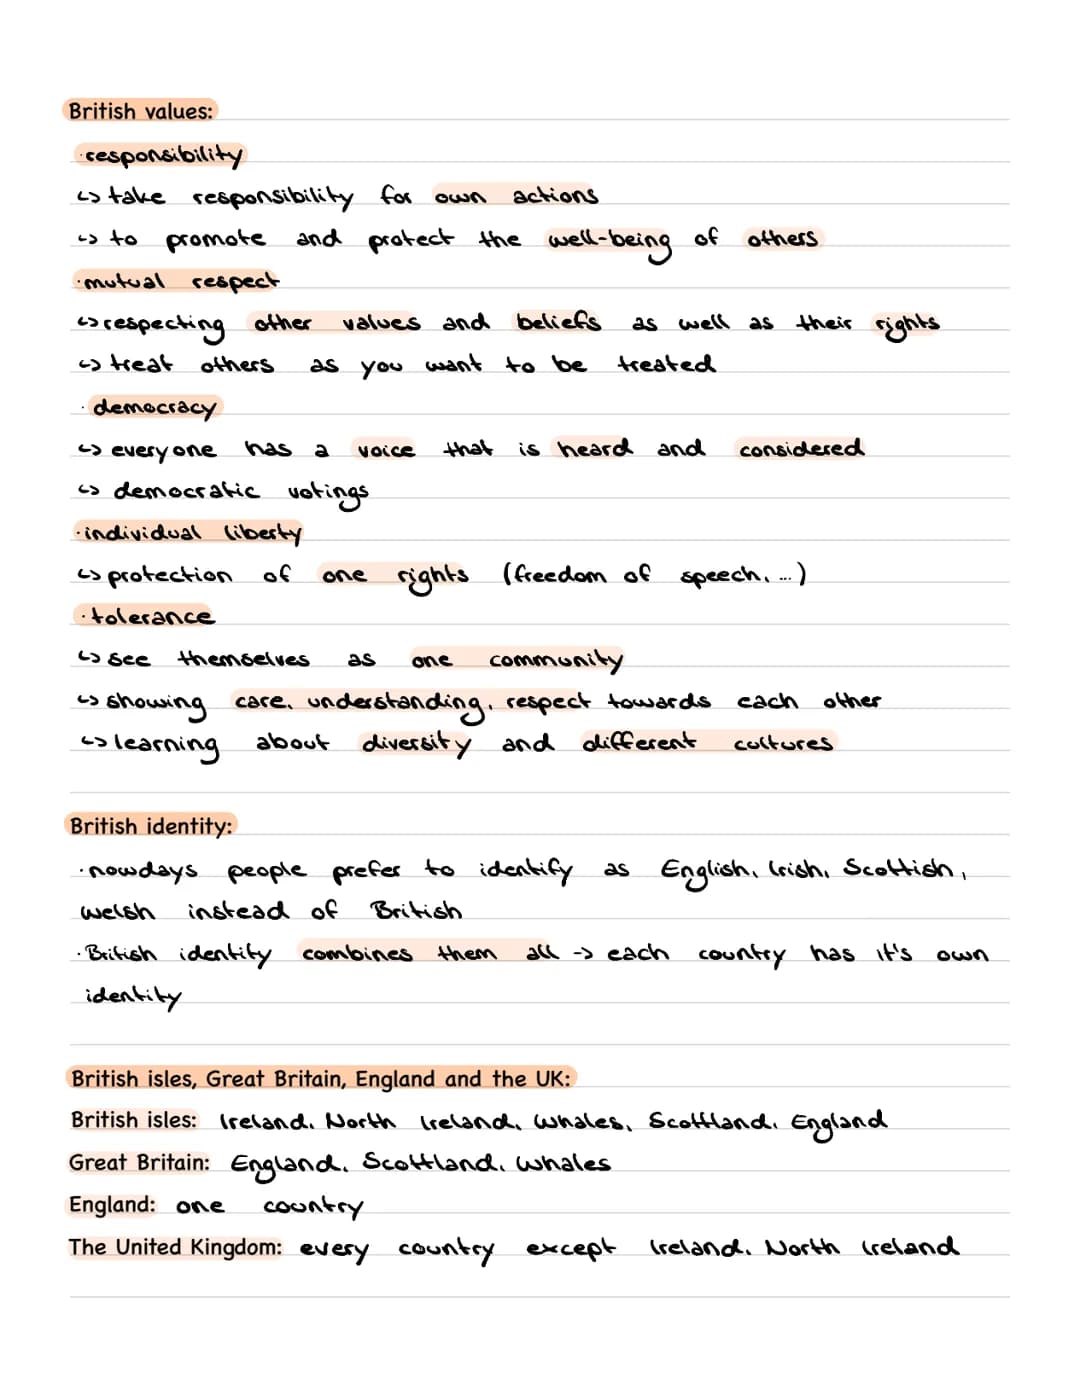 British values:
· responsibility
↳ take responsibility for own actions
↳ to promote and protect the well-being of others
· mutual respect
↳ respecting other values and beliefs as well as their rights
↳ treat others as you want to be treated
· democracy
↳ everyone has a voice that is heard and considered
↳ democratic votings
· individual liberty
↳ protection of one rights (freedom of speech, ...)
· tolerance
↳ see themselves as one community
↳ showing care, understanding, respect towards each other
↳ learning about diversity and different cultures
British identity:
· nowdays people prefer to identify as English, Irish, Scottish,
welsh instead of British
· British identity combines them all -> each country has it's own
identity
British isles, Great Britain, England and the UK:
British isles: Ireland, North Ireland, Whales, Scottland, England
Great Britain: England, Scottland, Whales
England: one country
The United Kingdom: every country except Ireland, North Ireland